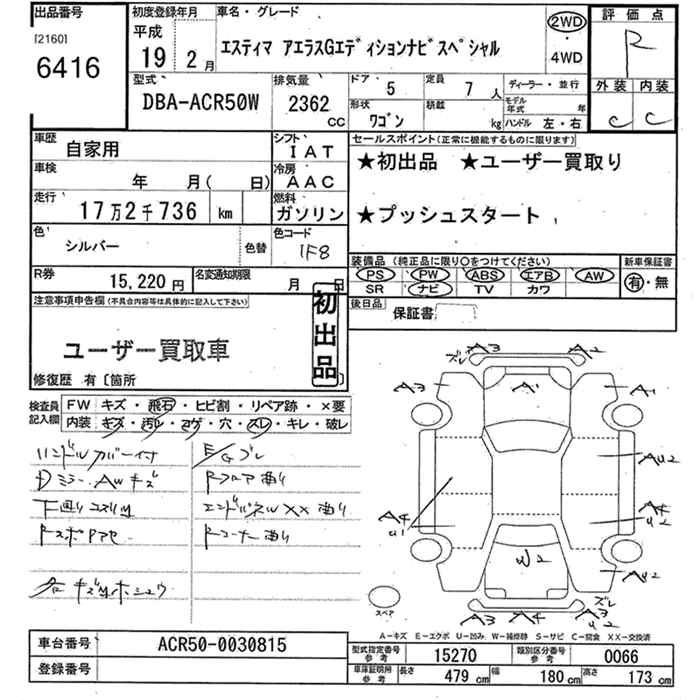 出品番号
[2160]
6416
初度登録年月
平成
19 2 月
車名・グレード
エスティマ アエラスGエディションナビスペシャル
2WD
・
4WD
評価点
R
外装 内装
C C
型式
DBA-ACR50W
排気量
2362
CC
ドア 5
定員 7 人
形状 ワゴン
積載 kg
ディーラー・並行
モデル年式 年
ハンドル 左・右
車歴 自家用
車検 年 月( 日)
走行 17万2千736 km
色 シルバー 色替
シフト IAT
冷房 AAC
燃料 ガソリン
色コード 1F8
セールスポイント(正常に機能するものに限ります)
★初出品 ★ユーザー買取り
★プッシュスタート
R券 15,220円
名変通知期限 月 日
装備品 (純正品に限り○をつけてください)
PS PW ABS エアB AW
SR ナビ TV カワ
新車保証書
有・無
後日品 保証書
注意事項申告欄(不具合内容等は具体的に記入して下さい)
ユーザー買取車
初出品
修復歴 有〔箇所
検査員記入欄
FW キズ・飛石・ヒビ割・リペア跡・×要
内装 キズ・汚レ・コゲ・穴・スレ・キレ・破レ
ハンドルカバー付
Dミラー.AWキズ
下廻りコスリ凹
Rフロア曲り
エンドパネルXX曲り
Rコーナー曲り
ズレ A3 A2
A3 A1 A3
A4
U1
AU2
A4
U2
U2
AU2
A3 A4 A3
ズレ
スペア
A-キズ E-エクボ U-凹み W-補修跡 S-サビ C-腐食 XX-交換済
車台番号 ACR50-0030815
登録番号
型式指定番号
参考
15270
類別区分番号
参考
0066
車庫証明用
参考
長さ 479 cm 幅 180 cm 高さ 173 cm